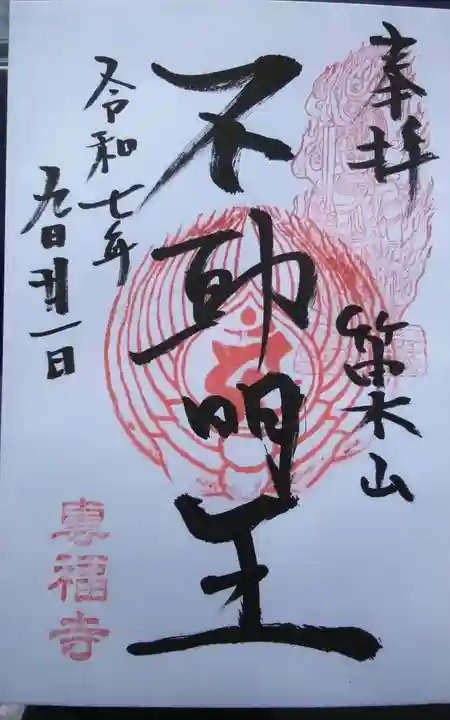 奉拝
笛木山
不動明王
令和七年
九月廿一日
專福寺